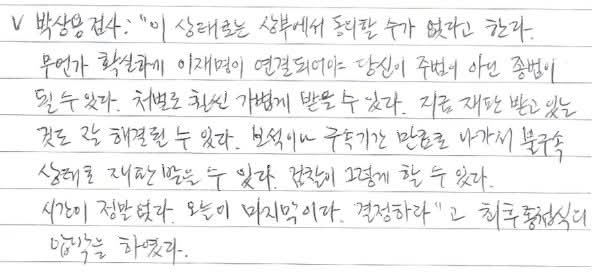 v 박상용검사: "이 상태로는 상부에서 동의할 수가 없다고 한다.
무언가 확실하게 이재명이 연결되어야 당신이 주범이 아닌 종범이
될 수 있다. 처벌도 훨씬 가볍게 받을 수 있다. 지금 재판 받고 있는
것도 잘 해결될 수 있다. 보석이나 구속기간 만료로 나가서 불구속
상태로 재판 받을 수 있다. 검찰이 그렇게 할 수 있다.
시간이 정말 없다. 오늘이 마지막이다. 결정하라"고 최후통첩식의
압박을 하였다.